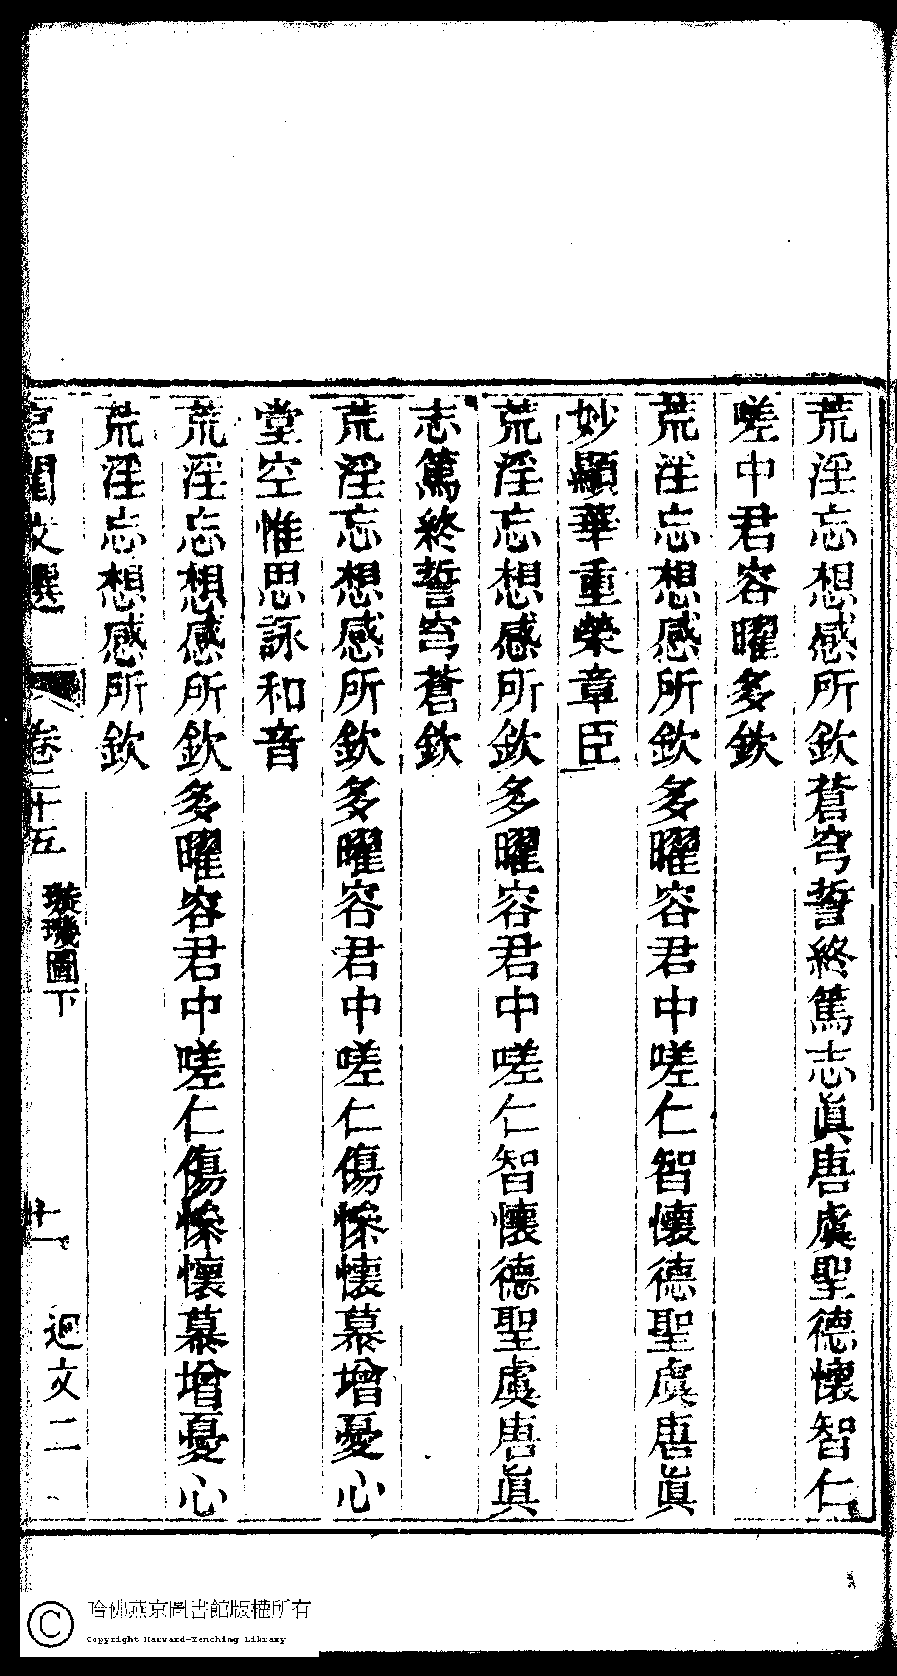 荒淫忘想感所欽蒼穹誓終篤志眞唐虞聖德懷智仁
嗟中君容曜多欽
荒淫忘想感所欽多曜容君中嗟仁智懷德聖虞唐眞
妙顯華重榮章臣
荒淫忘想感所欽多曜容君中嗟仁智懷德聖虞唐眞
志篤終誓穹蒼欽
荒淫忘想感所欽多曜容君中嗟仁傷慘懷慕增憂心
堂空惟思詠和音
荒淫忘想感所欽多曜容君中嗟仁傷慘懷慕增憂心
荒淫忘想感所欽
宮閨文選 卷二十五 璇璣圖下 十一 迴文二
哈佛燕京圖書館版權所有
Copyright Harvard-Yenching Library